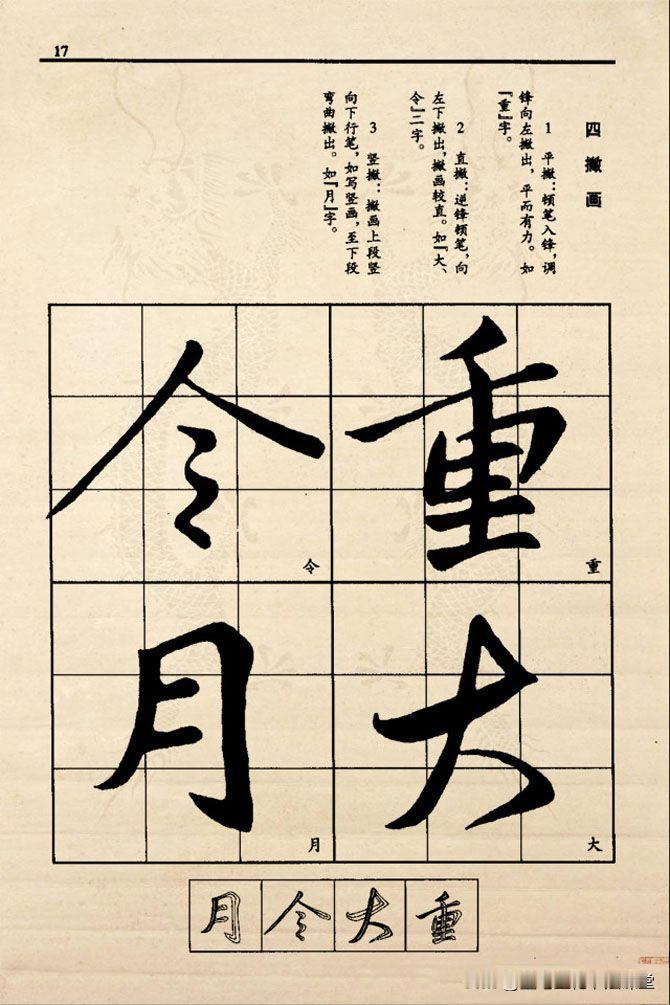 17
四 撇 画
1 平撇：顿笔入锋，调
锋向左撇出，平而有力。如
『重』字。
2 直撇：逆锋顿笔，向
左下撇出，撇画较直。如『大、
令』二字。
3 竖撇：撇画上段竖
向下行笔，如写竖画，至下段
弯曲撇出。如『月』字。
重
重
令
令
大
大
月
月
月 令 大 重